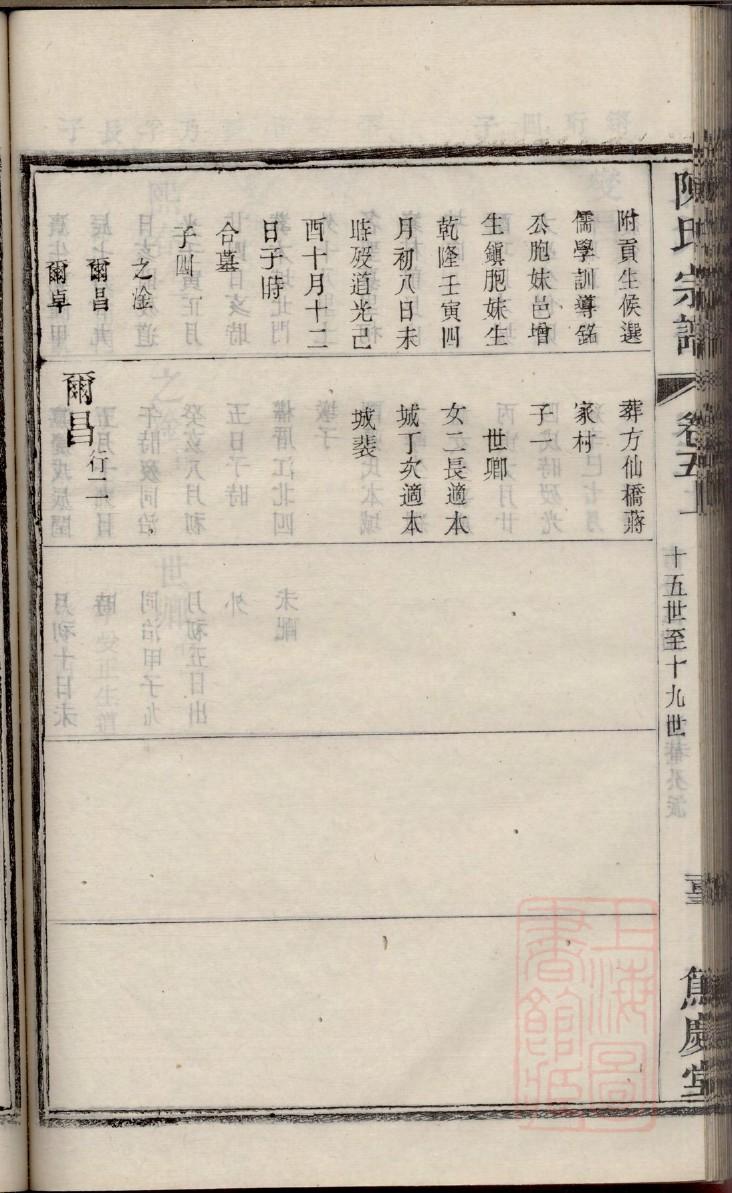 陳氏宗譜
卷五
十五世至十九世
篤慶堂
附貢生候選
儒學訓導銘
公胞妹邑增
生鎮胞妹生
乾隆壬寅四
月初八日未
時歿道光己
酉十月十二
日子時
合墓
子四
之淦
爾昌
爾卓
葬方仙橋蔣
家村
子一
世卿
女二長適本
城丁次適本
城裴
爾昌行二
上海圖書館藏